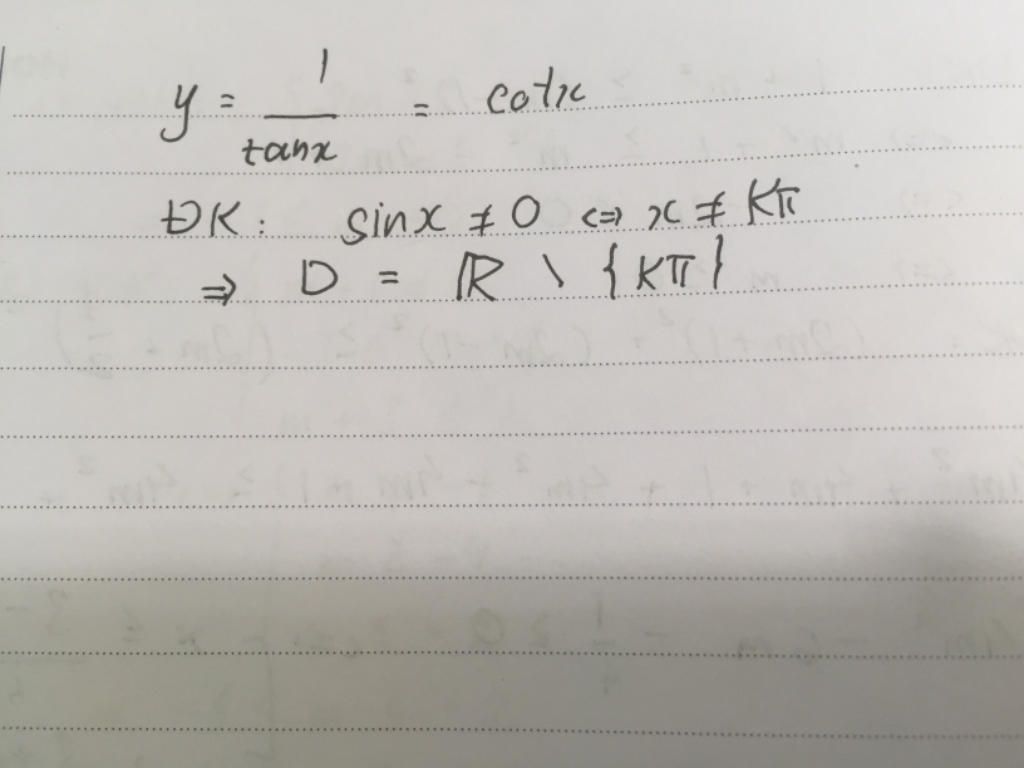 y = 1/tanx = cotx
ĐK: sinx ≠ 0 <=> x ≠ Kπ
=> D = ℝ \ {Kπ}